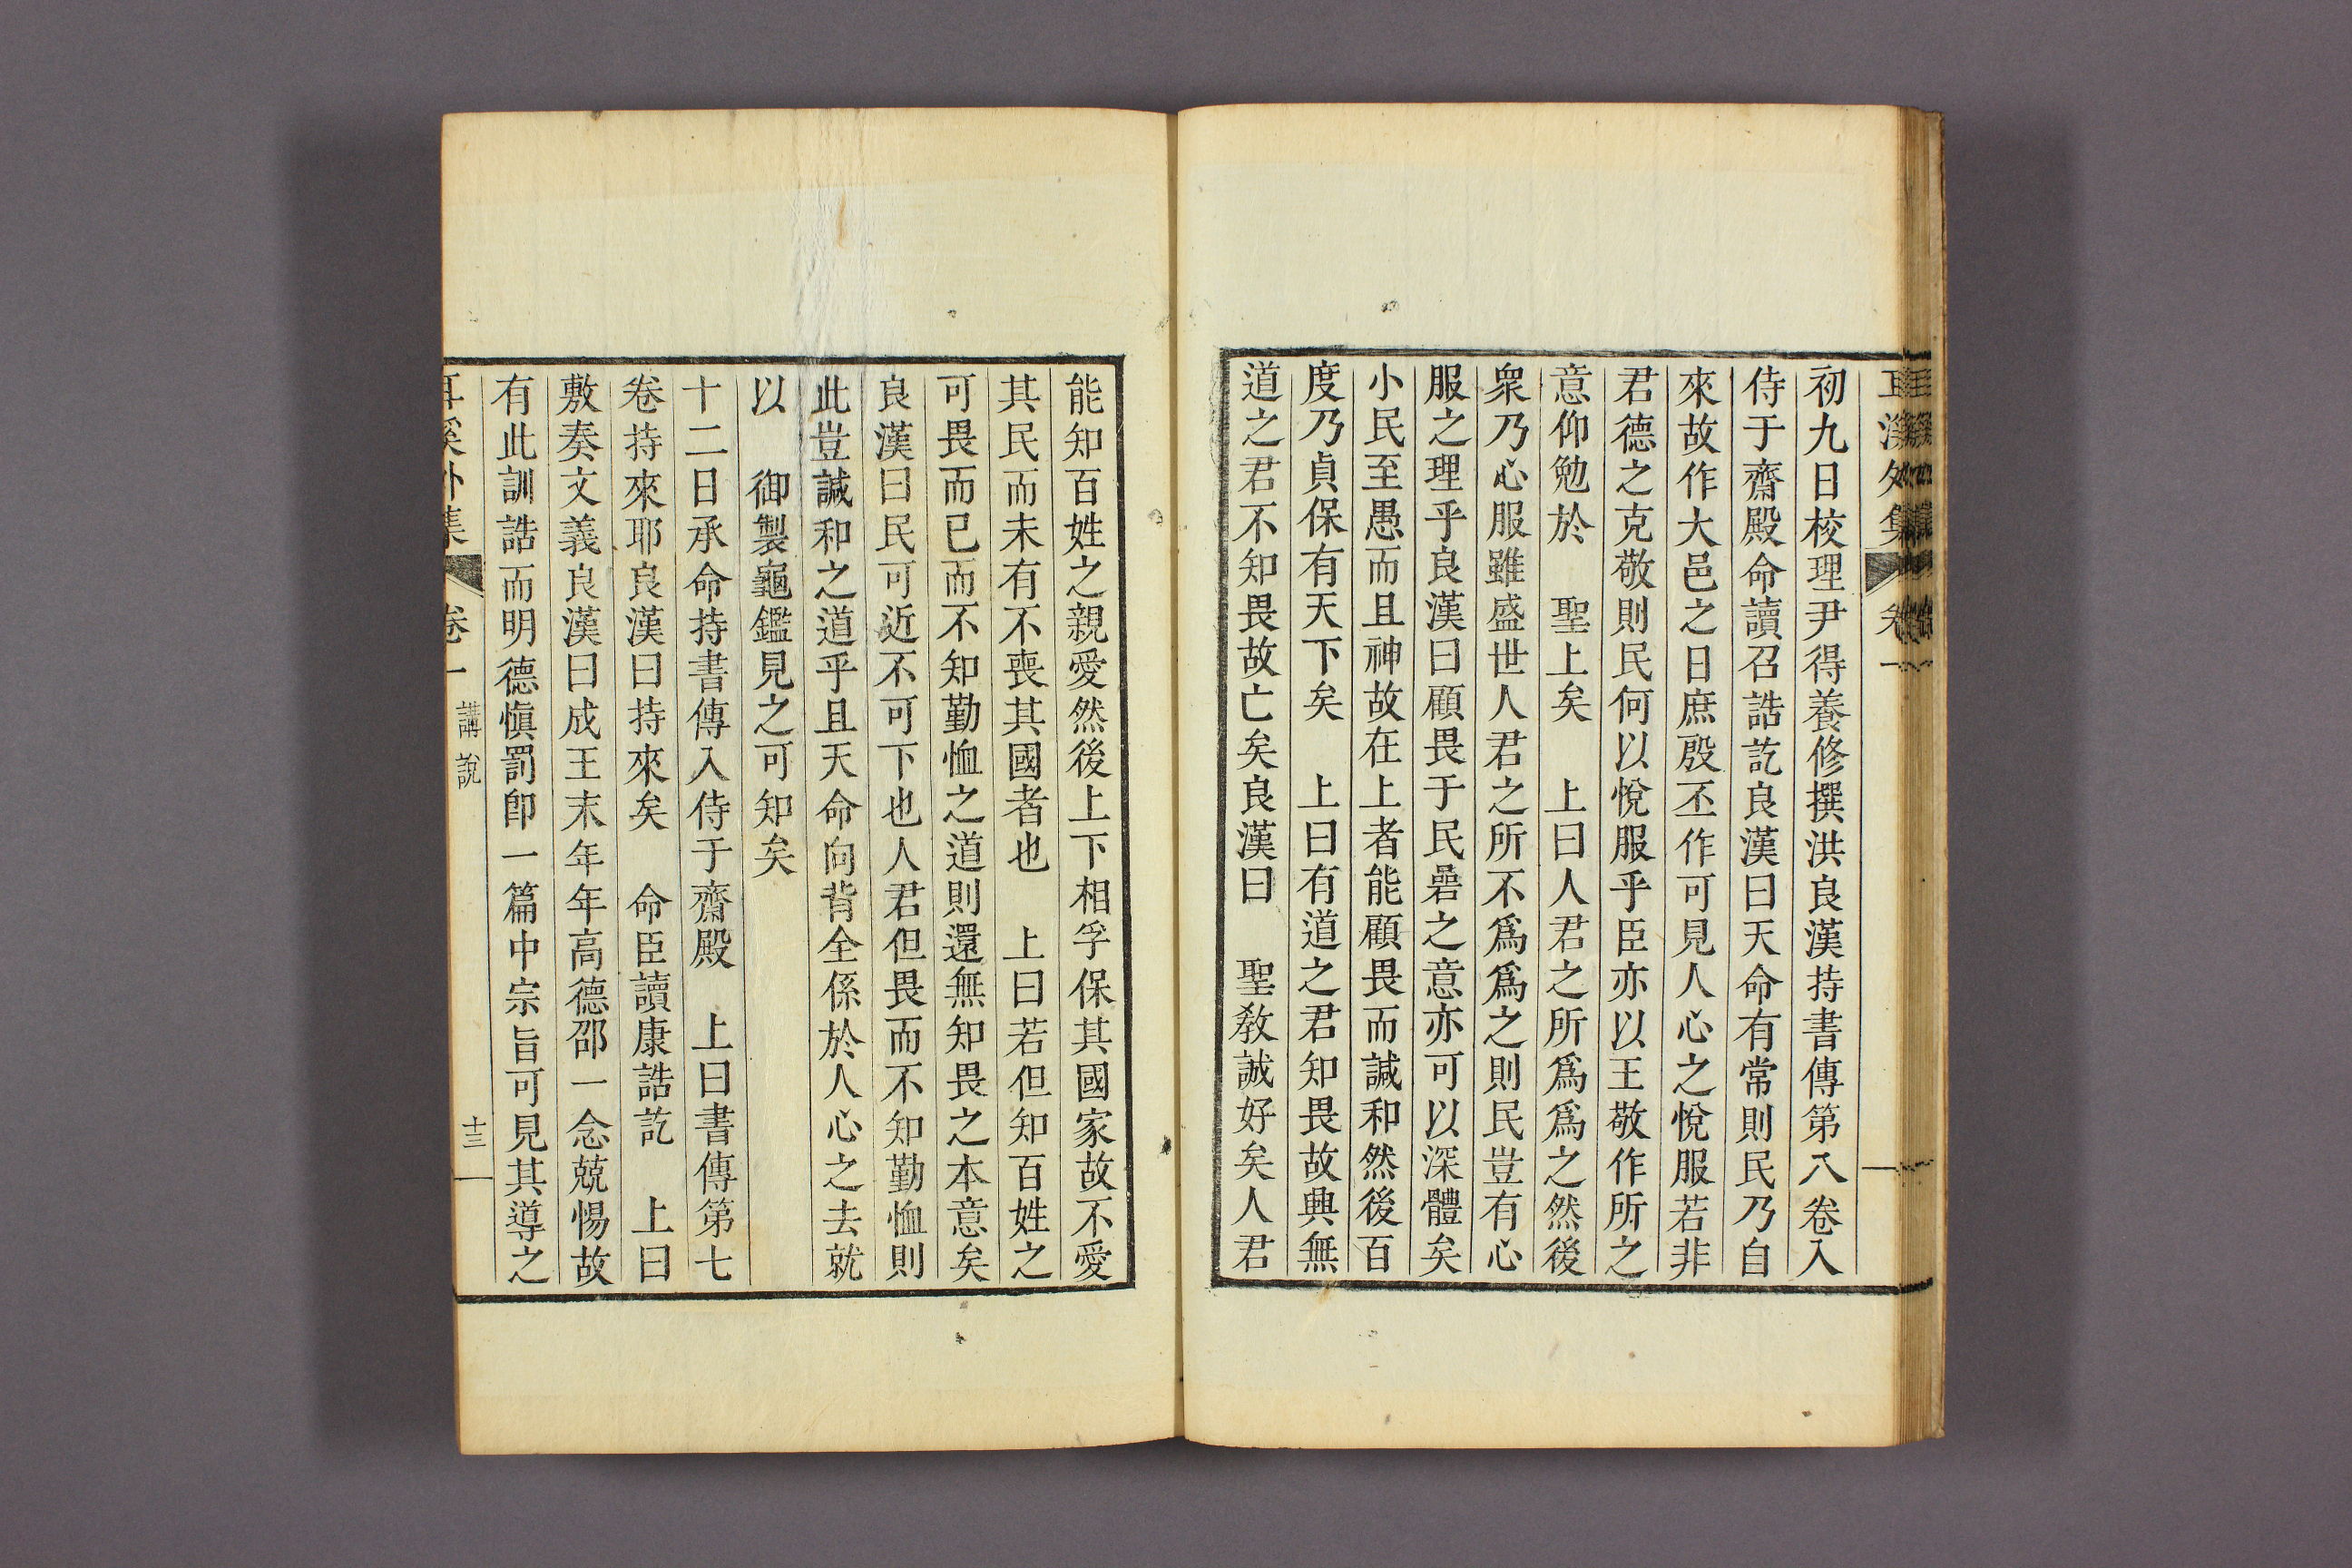 初九日校理尹得養修撰洪良漢持書傳第八卷入
侍于齋殿命讀召誥訖良漢曰天命有常則民乃自
來故作大邑之日庶殷丕作可見人心之悅服若非
君德之克敬則民何以悅服乎臣亦以王敬作所之
意仰勉於　聖上矣　上曰人君之所爲爲之然後
衆乃心服雖盛世人君之所不爲爲之則民豈有心
服之理乎良漢曰顧畏于民碞之意亦可以深體矣
小民至愚而且神故在上者能顧畏而諴和然後百
度乃貞保有天下矣　上曰有道之君知畏故興無
道之君不知畏故亡矣良漢曰　聖敎誠好矣人君
能知百姓之親愛然後上下相孚保其國家故不愛
其民而未有不喪其國者也　上曰若但知百姓之
可畏而已而不知勤恤之道則還無知畏之本意矣
良漢曰民可近不可下也人君但畏而不知勤恤則
此豈諴和之道乎且天命向背全係於人心之去就
以　御製龜鑑見之可知矣
十二日承命持書傳入侍于齋殿　上曰書傳第七
卷持來耶良漢曰持來矣　命臣讀康誥訖　上曰
敷奏文義良漢曰成王末年年高德邵一念兢惕故
有此訓誥而明德愼罰卽一篇中宗旨可見其導之
耳溪外集　卷一　講說　十三